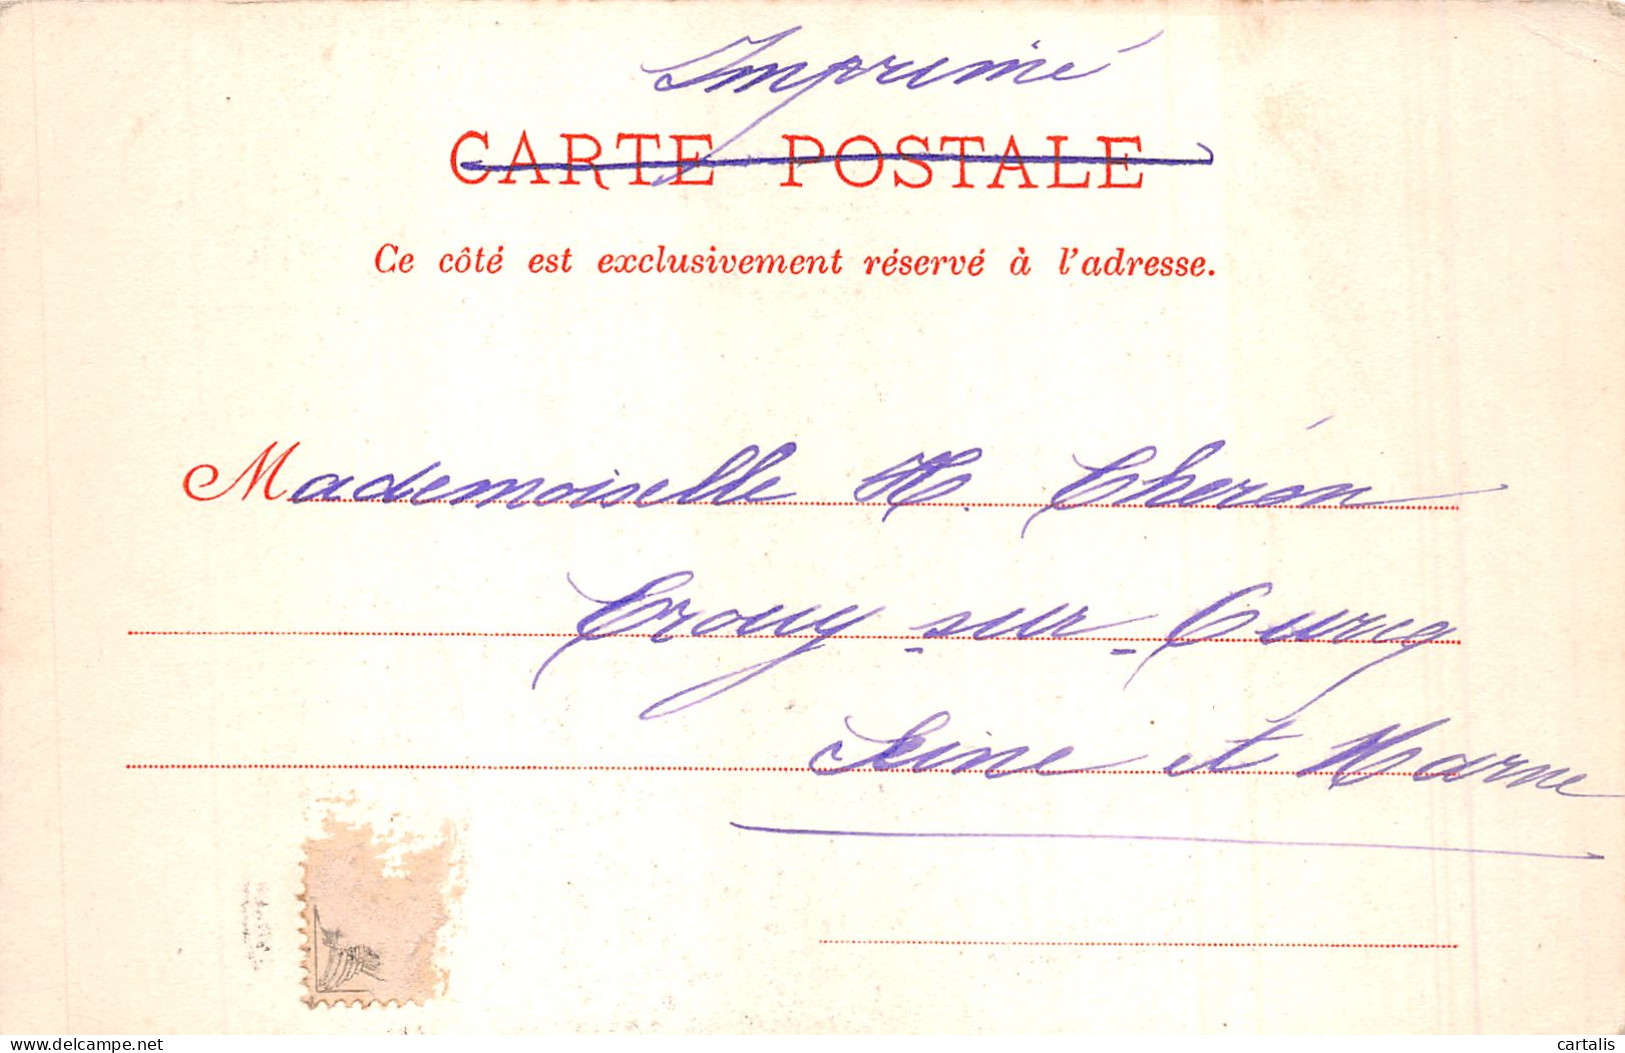 Imprimé
CARTE POSTALE
Ce côté est exclusivement réservé à l'adresse.
Mademoiselle H. Chéron
Crouy-sur-Ourcq
Seine et Marne
www.delcampe.net
cartalis